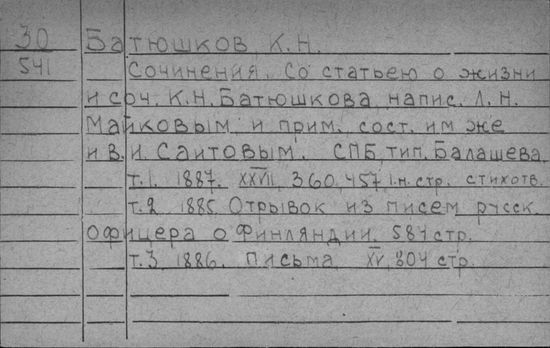 30 Батюшков, К.Н.
541 Сочинения. Со статьею о жизни
и соч. К.Н. Батюшкова, напис. Л.Н.
Майковым, и прим. сост. им же
и В.И. Саитовым. СПБ, тип. Балашева.
т.1. 1887. XXVII, 360, 457, 1 н. стр. стихотв.
т.2 1885. Отрывок из писем русск.
офицера о Финляндии. 587 стр.
т.3, 1886. Письма. XV, 804 стр.